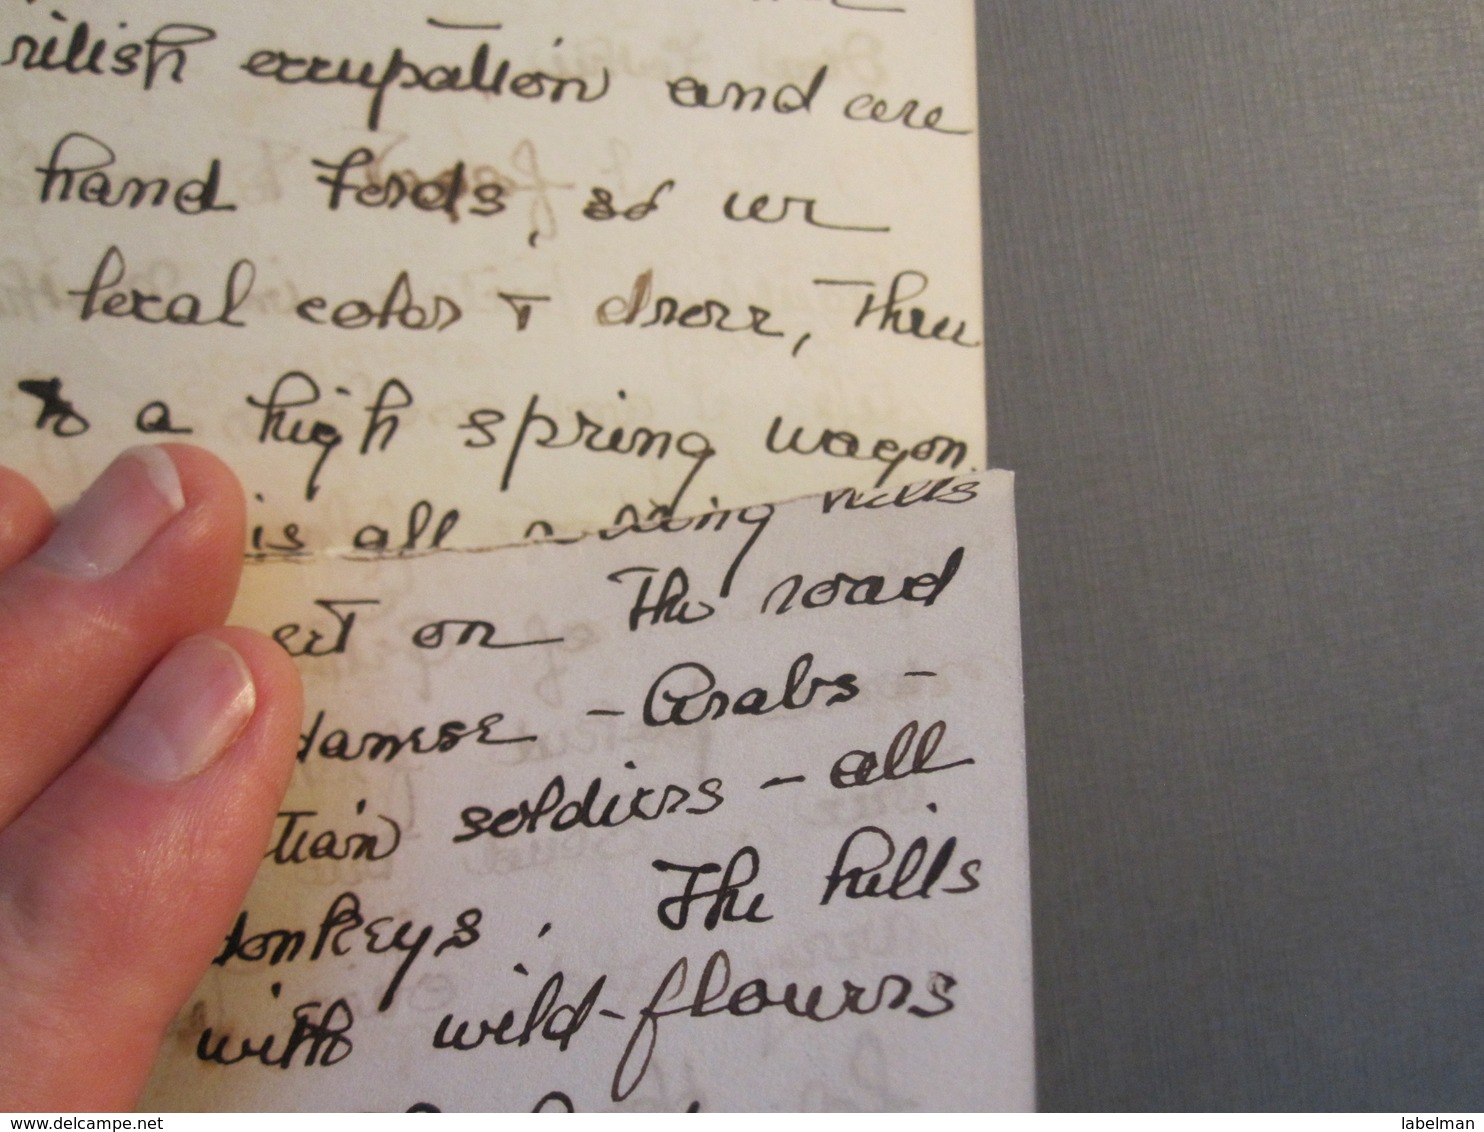 ritish occupation and are
hand Fords, so we
local color & drove, Thru
to a high spring wagon.
is all rolling hills
ert on The road
danese - Arabs -
tian soldiers - all
donkeys. The hills
with wild-flowers
delcampe.net
labelman